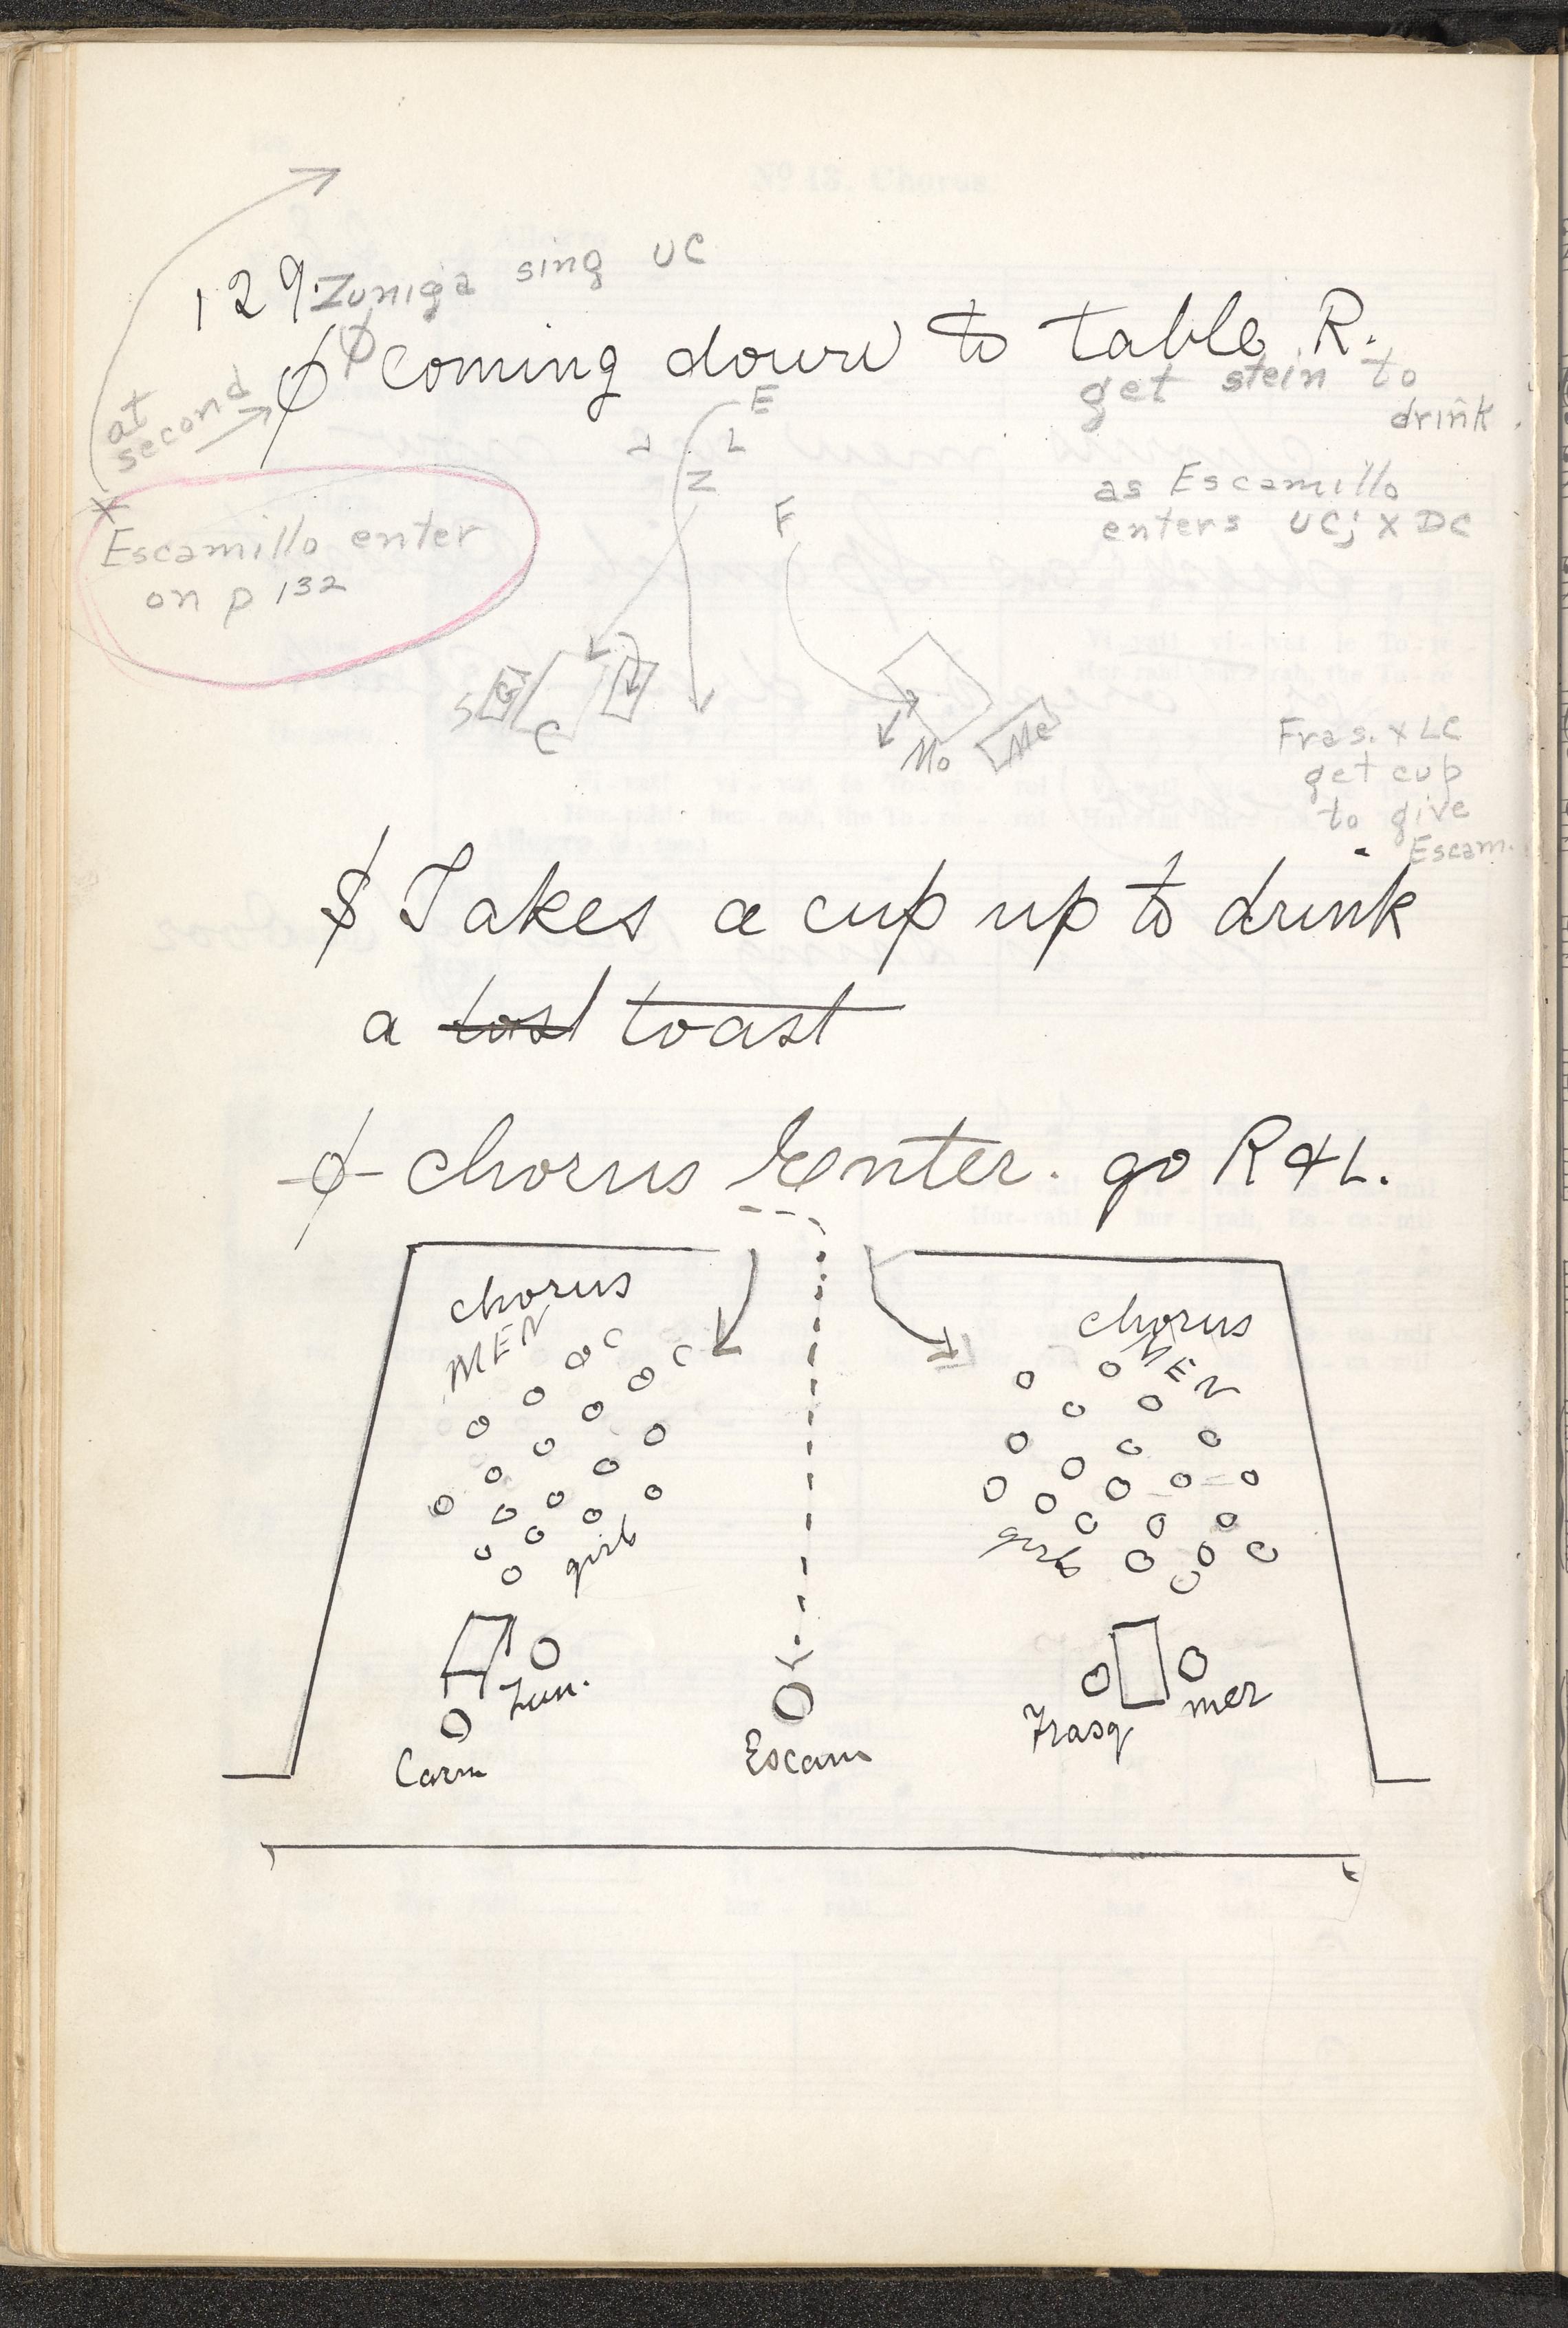 129. Zuniga sing UC
φ φ coming down to table R.
get stein to
drink.
at
second
E
L
Z
F
as Escamillo
enters UC; X DC
x
Escamillo enter
on p 132
S
C
Mo
Me
Fras. x LC
get cup
to give
Escam.
$ Takes a cup up to drink
a tost toast
φ chorus Enter. go R & L.
chorus
MEN
chorus
MEN
girls
girls
Zun.
Carm
Escam
Frasq
mer